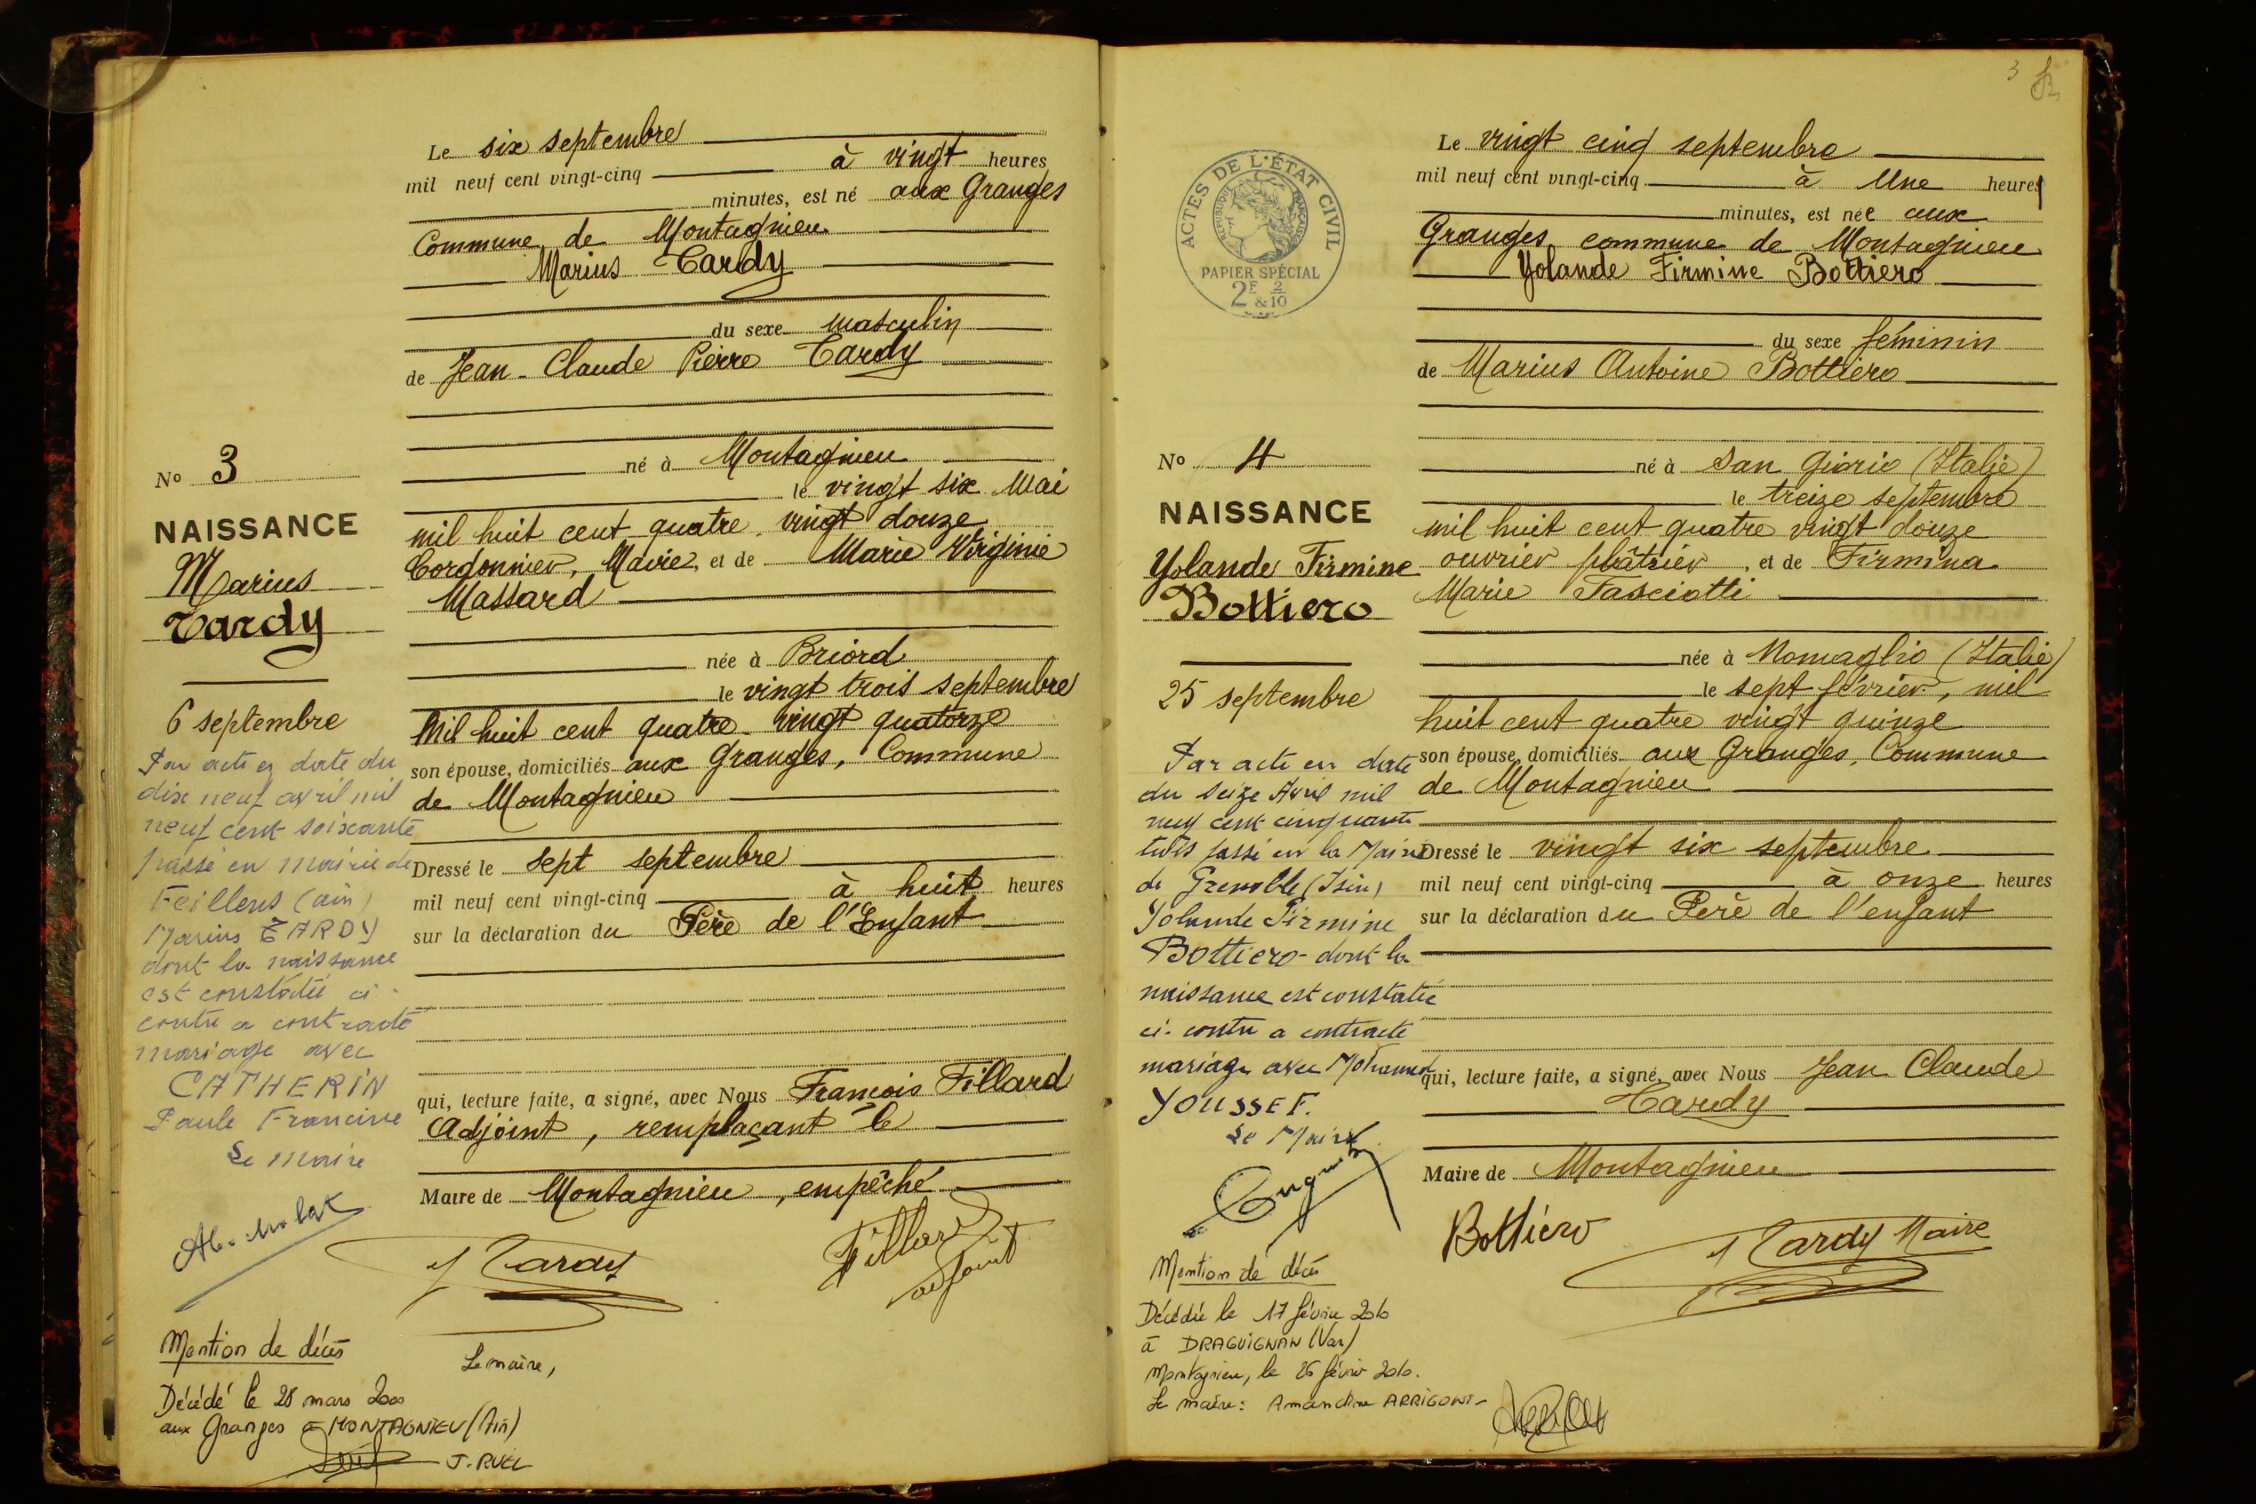 Le six septembre
mil neuf cent vingt-cinq à vingt heures
minutes, est né aux Granges
Commune de Montagnieu
Marius Tardy
du sexe masculin
de Jean-Claude Pierre Tardy
né à Montagnieu
le vingt six Mai
mil huit cent quatre vingt douze
Cordonnier, Maire, et de Marie Virginie
Massard
née à Briord
le vingt trois septembre
Mil huit cent quatre-vingt quatorze
son épouse, domiciliés aux Granges, Commune
de Montagnieu
Dressé le sept septembre
mil neuf cent vingt-cinq à huit heures
sur la déclaration du Père de l'Enfant
qui, lecture faite, a signé, avec Nous François Fillard
Adjoint, remplaçant le
Maire de Montagnieu, empêché
J Tardy
Fillard
adjoint
No 3
NAISSANCE
Marius
Tardy
6 septembre
Par acte en date du
dix neuf avril mil
neuf cent soixante
passé en mairie de
Feillens (ain)
Marius TARDY
dont la naissance
est constatée ci-
contre a contracté
mariage avec
CATHERIN
Paule Francine
Le maire
Mention de décès
Décédé le 28 mars 2000
aux Granges à MONTAGNIEU (Ain)
Le maire,
J. RUEL
3
Le vingt cinq septembre
mil neuf cent vingt-cinq à Une heures
minutes, est née aux
Granges commune de Montagnieu
Yolande Firmine Bottiero
du sexe féminin
de Marius Antoine Bottiero
né à San Giorio (Italie)
le treize septembre
mil huit cent quatre vingt douze
ouvrier plâtrier, et de Firmina
Marie Fasciotti
née à Nomaglio (Italie)
le sept février, mil
huit cent quatre vingt quinze
son épouse, domiciliés aux Granges, Commune
de Montagnieu
Dressé le vingt six septembre
mil neuf cent vingt-cinq à onze heures
sur la déclaration du Père de l'enfant
qui, lecture faite, a signé, avec Nous Jean Claude
Tardy
Maire de Montagnieu
Bottiero
J Tardy Maire
ACTES DE L'ÉTAT CIVIL
RÉPUBLIQUE FRANÇAISE
PAPIER SPÉCIAL
2F & 2/10
No 4
NAISSANCE
Yolande Firmine
Bottiero
25 septembre
Par acte en date
du seize Avril mil
neuf cent cinquante
trois passé en la Mairie
de Grenoble (Isère)
Yolande Firmine
Bottiero dont la
naissance est constatée
ci-contre a contracté
mariage avec Mohammed
YOUSSEF.
Le Maire
Mention de décès
Décédée le 17 février 2010
à DRAGUIGNAN (Var)
Montagnieu, le 26 février 2010.
Le maire: Amandine ARRIGONI-